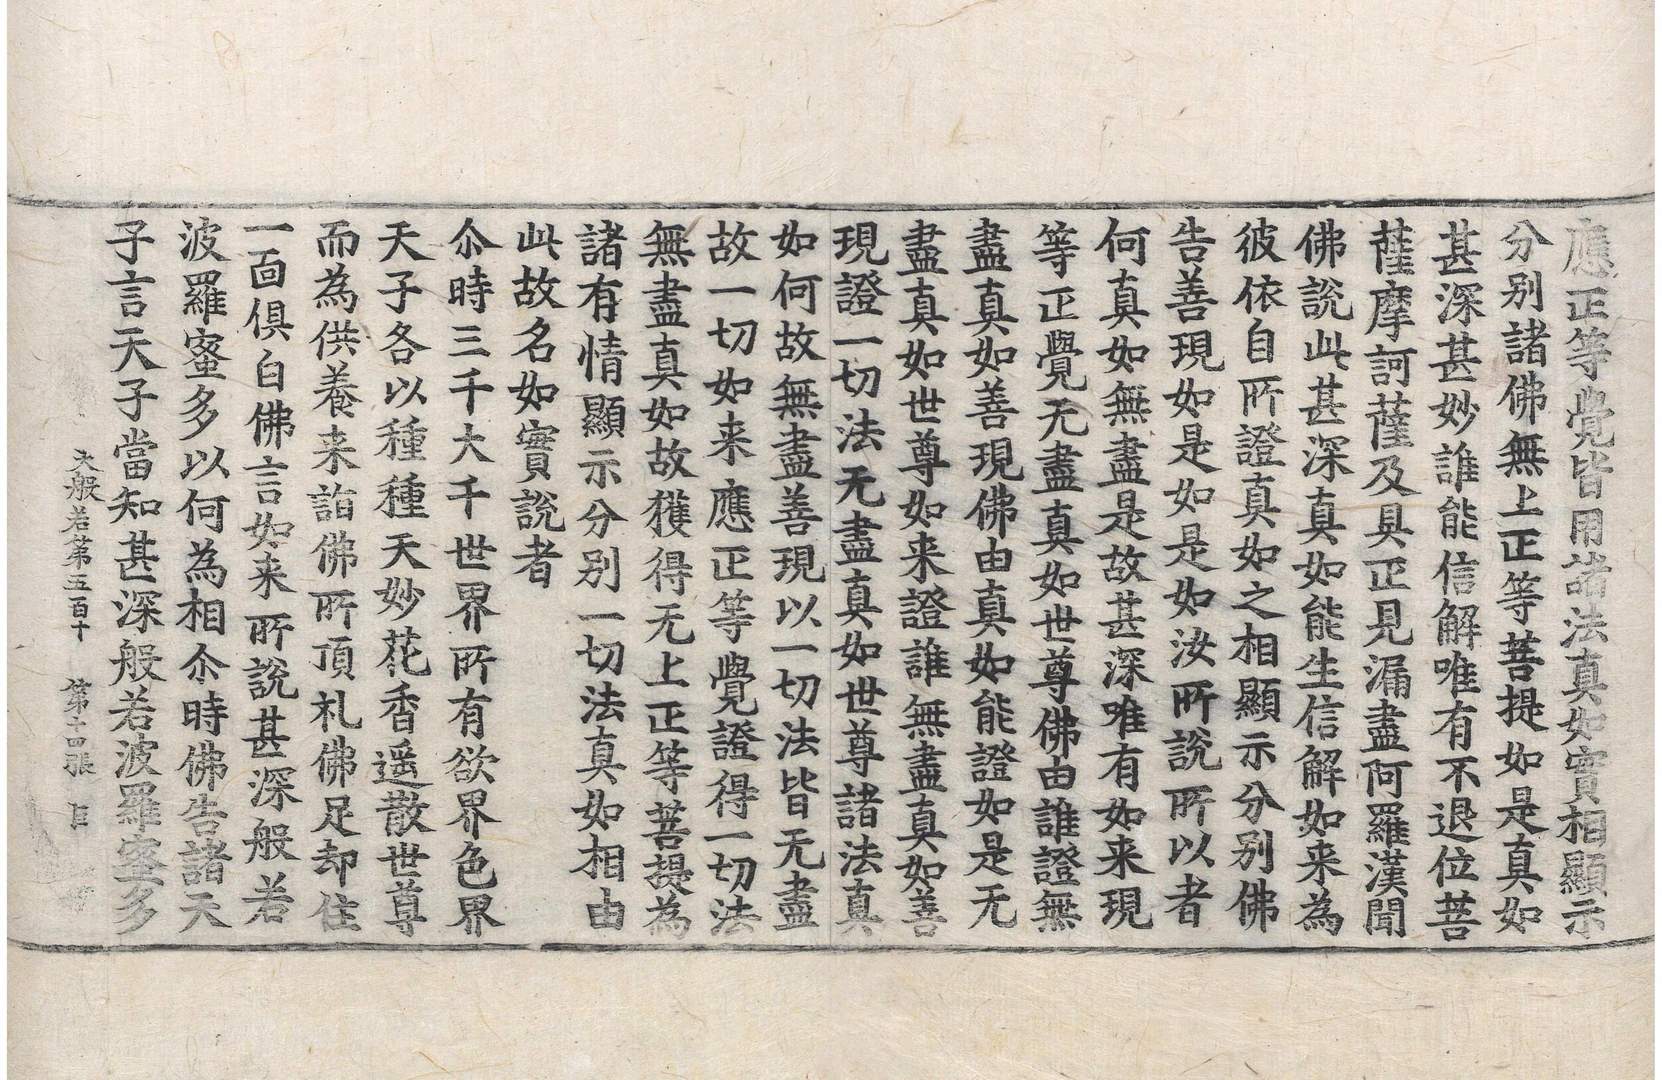 應正等覺皆用諸法真如實相顯示
分別諸佛無上正等菩提如是真如
甚深甚妙誰能信解唯有不退位菩
薩摩訶薩及具正見漏盡阿羅漢聞
佛說此甚深真如能生信解如来為
彼依自所證真如之相顯示分別佛
告善現如是如是如汝所說所以者
何真如無盡是故甚深唯有如来現
等正覺无盡真如世尊佛由誰證無
盡真如善現佛由真如能證如是无
盡真如世尊如来證誰無盡真如善
現證一切法无盡真如世尊諸法真
如何故無盡善現以一切法皆无盡
故一切如来應正等覺證得一切法
無盡真如故獲得无上正等菩提為
諸有情顯示分別一切法真如相由
此故名如實說者
尒時三千大千世界所有欲界色界
天子各以種種天妙花香遥散世尊
而為供養来詣佛所頂礼佛足却住
一面俱白佛言如来所說甚深般若
波羅蜜多以何為相尒時佛告諸天
子言天子當知甚深般若波羅蜜多
大般若第五百十 第十四張